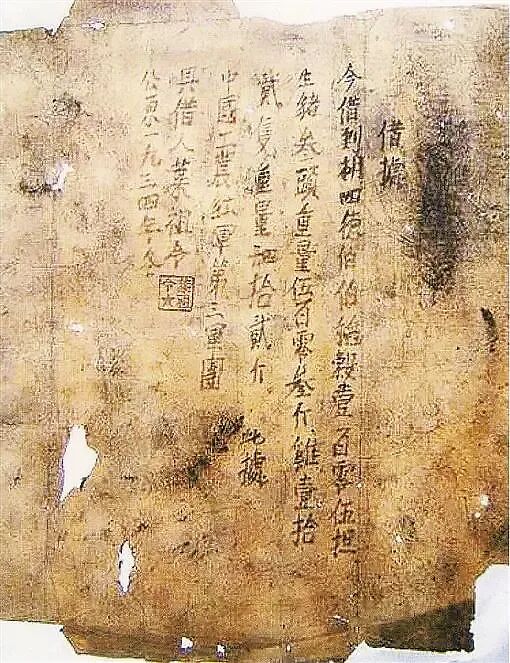 借據
今借到胡四德伯伯稻穀壹百零伍担
生豬叁頭重量伍百零叁斤、雞壹拾
貳隻重量泗拾貳斤 此據
中國工農紅軍第三軍團
具借人葉祖令
公歷一九三四年冬